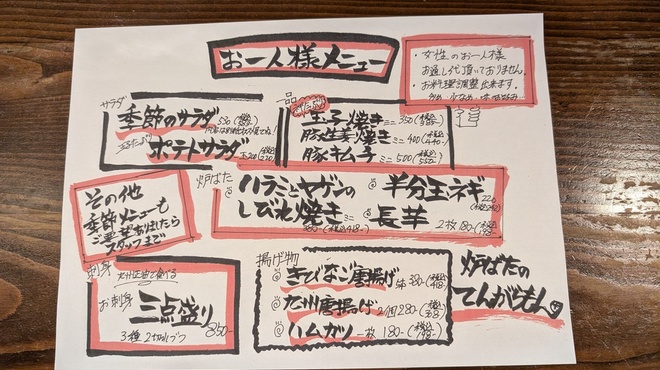 お一人様メニュー
・女性のお一人様
お通し代頂いておりません。
・お料理調整出来ます。
サラダ
季節のサラダ
ポテトサラダ
一品
玉子焼き ミニ 350
豚生姜焼き ミニ 400
豚キムチ ミニ 500
炉ばた
ハラミとヤゲンの
しびれ焼き ミニ
半分玉ネギ 220
長芋 2枚 180-
その他
季節メニューも
ご要望あれましたら
スタッフまで
刺身
九州正油で食べる
お刺身
三点盛り 850-
3種 2切れづつ
揚げ物
きびなご唐揚げ 5本 380-
九州唐揚げ 2個 280-
ハムカツ 一枚 180-
炉ばたの
てんがらもん